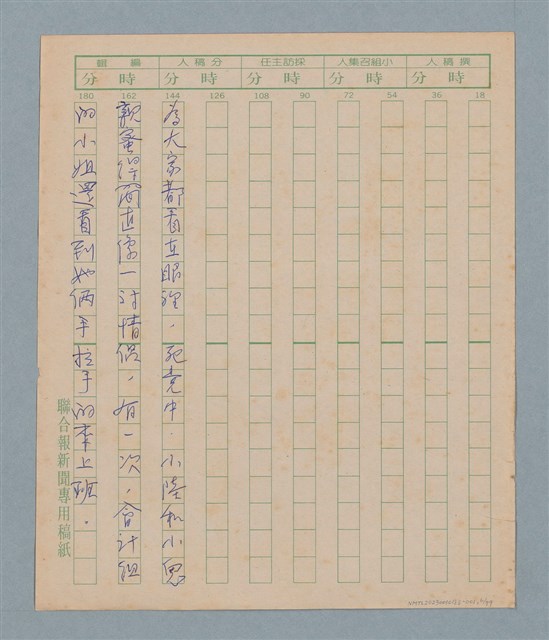 撰稿人 小組召集人 採訪主任 分稿人 編輯
時 分 時 分 時 分 時 分 時 分
18 36 54 72 90 108 126 144 162 180
為大家都看在眼裡,死党中,小陸和小鬼
親蜜得簡直像一対情侶,有一次,會計組
的小姐還看到她倆手拉手的來上班。
聯合報新聞專用稿紙